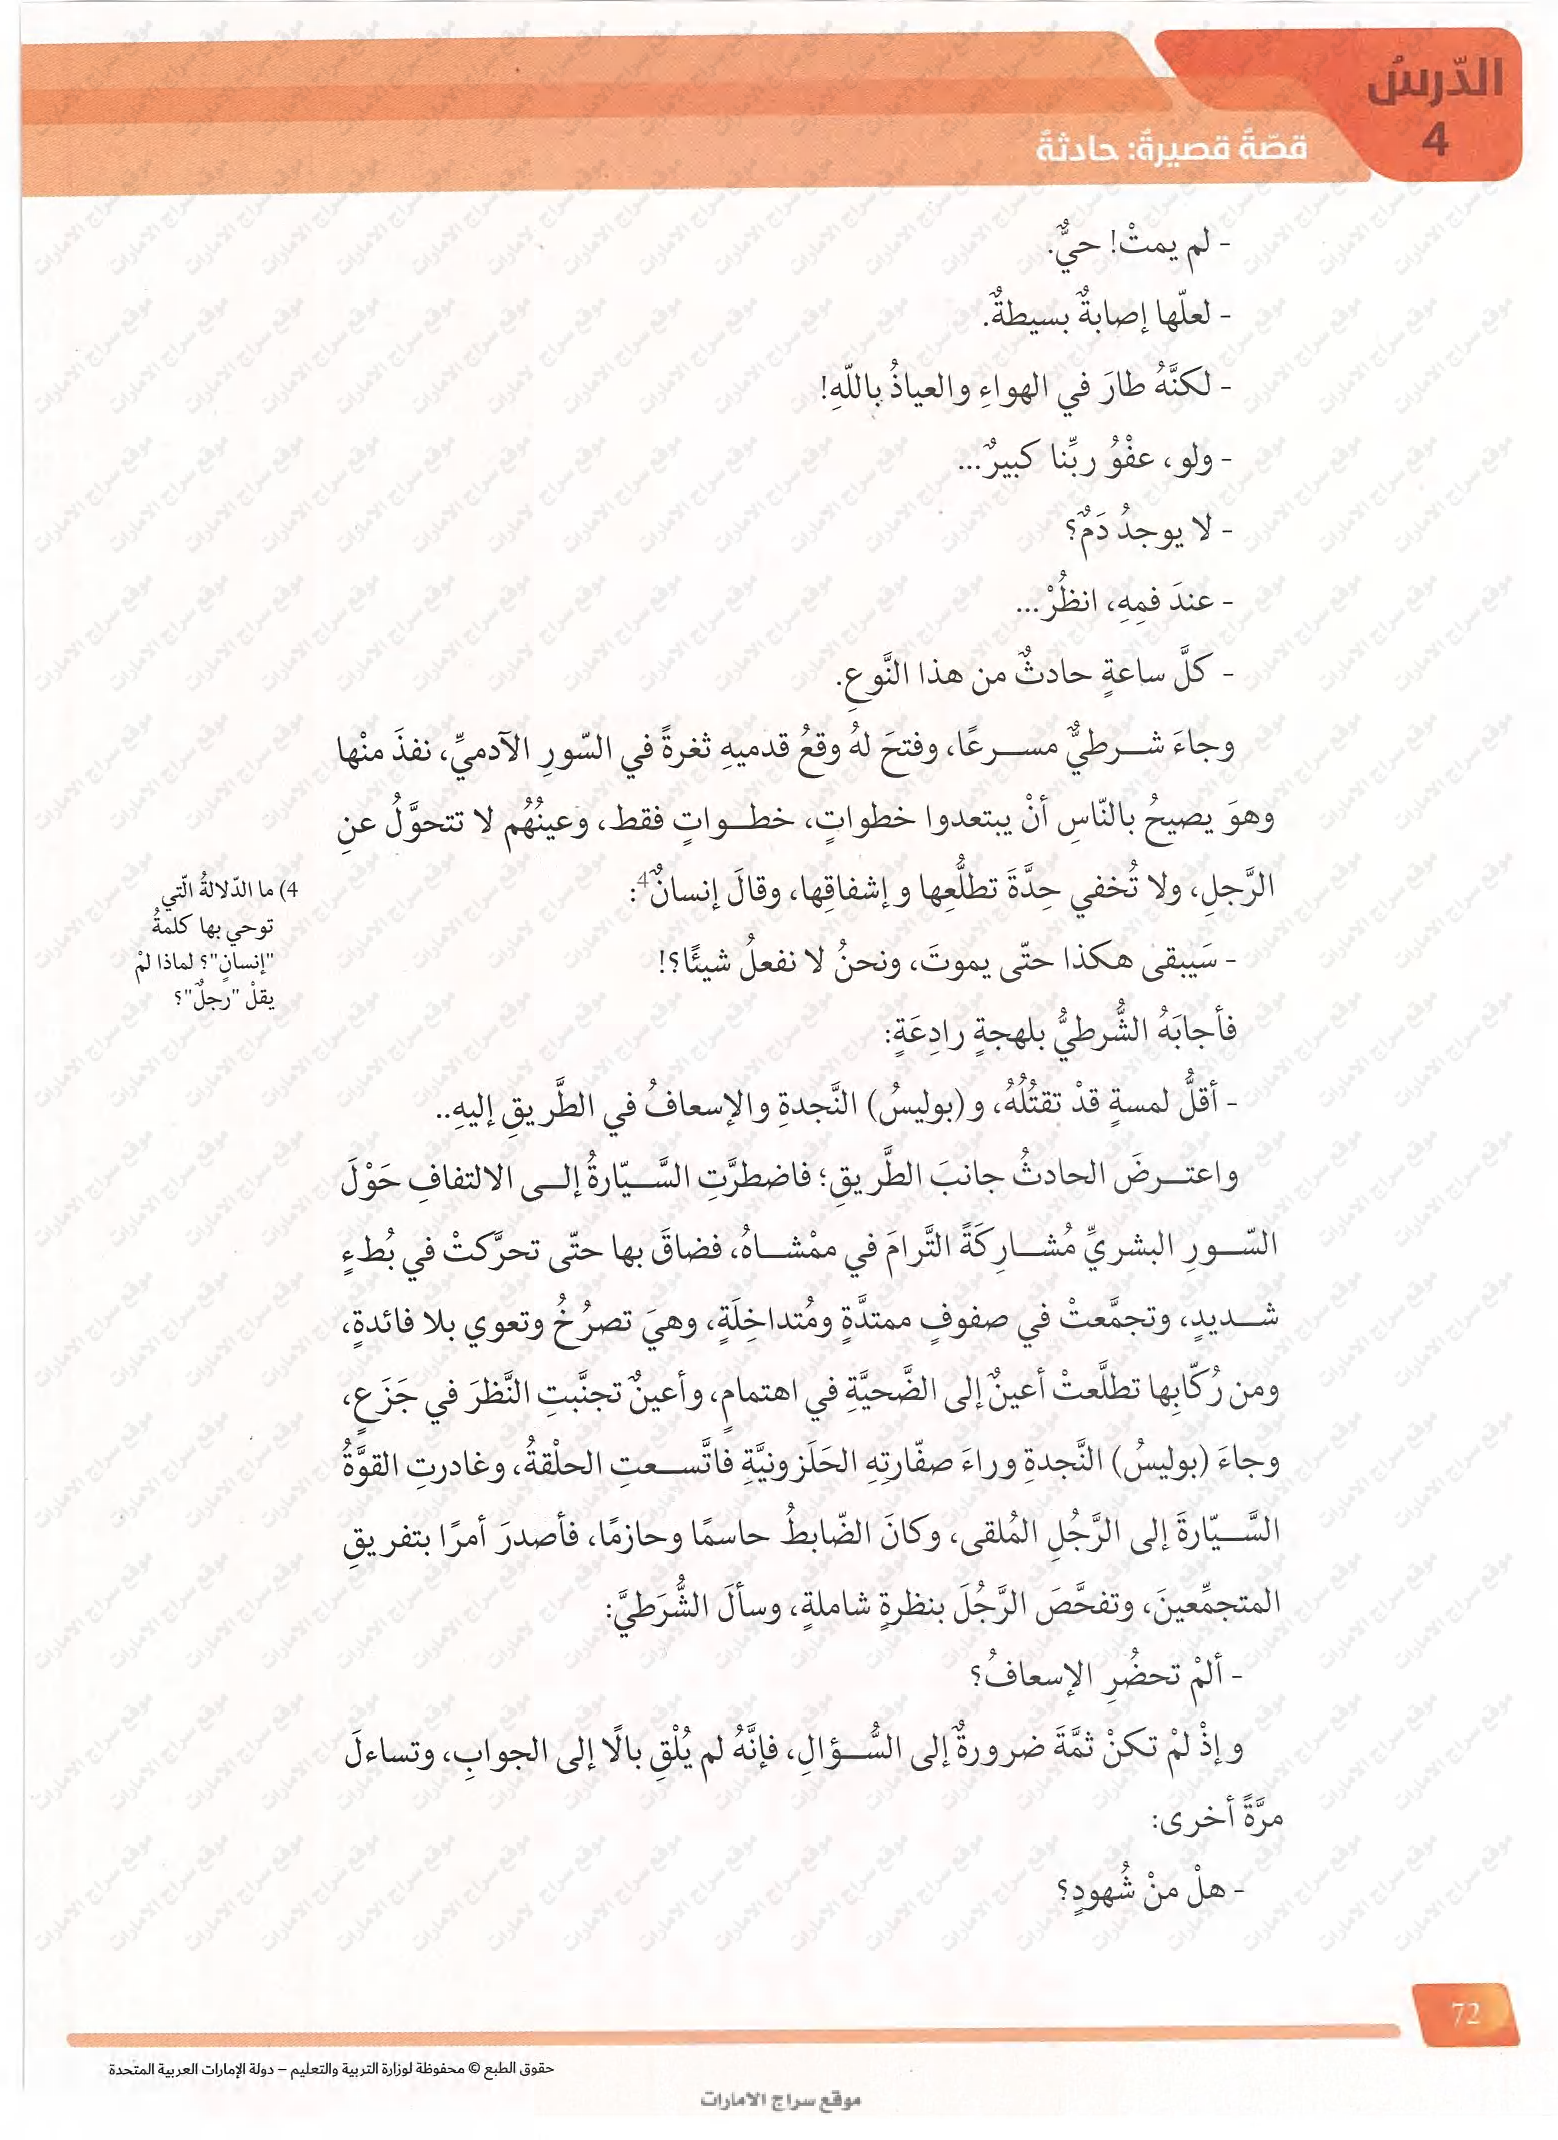 الدّرسُ
4
قصّةٌ قصيرةٌ: حادثةٌ
- لم يمتْ! حيٌّ.
- لعلّها إصابةٌ بسيطةٌ.
- لكنَّهُ طارَ في الهواءِ والعياذُ باللّهِ!
- ولو، عفْوُ ربِّنا كبيرٌ...
- لا يوجدُ دَمٌ؟
- عندَ فمِهِ، انظُرْ...
- كلَّ ساعةٍ حادثٌ من هذا النَّوعِ.
وجاءَ شرطيٌّ مسرعًا، وفتحَ لهُ وقعُ قدميهِ ثغرةً في السّورِ الآدميِّ، نفذَ منْها
وهوَ يصيحُ بالنّاسِ أنْ يبتعدوا خطواتٍ، خطواتٍ فقط، وعينُهُم لا تتحوَّلُ عنِ
الرَّجلِ، ولا تُخفي حِدَّةَ تطلُّعِها وإشفاقِها، وقالَ إنسانٌ4:
- سَيبقى هكذا حتّى يموتَ، ونحنُ لا نفعلُ شيئًا؟!
فأجابَهُ الشُّرطيُّ بلهجةٍ رادِعَةٍ:
- أقلُّ لمسةٍ قدْ تقتُلُهُ، و(بوليسُ) النَّجدةِ والإسعافُ في الطَّريقِ إليهِ..
واعترضَ الحادثُ جانبَ الطَّريقِ؛ فاضطرَّتِ السَّيّارةُ إلى الالتفافِ حَوْلَ
السّورِ البشريِّ مُشارِكَةً التَّرامَ في ممْشاهُ، فضاقَ بها حتّى تحرَّكتْ في بُطءٍ
شديدٍ، وتجمَّعتْ في صفوفٍ ممتدَّةٍ ومُتداخِلَةٍ، وهيَ تصرُخُ وتعوي بلا فائدةٍ،
ومن رُكّابِها تطلَّعتْ أعينٌ إلى الضَّحيَّةِ في اهتمامٍ، وأعينٌ تجنَّبتِ النَّظرَ في جَزَعٍ،
وجاءَ (بوليسُ) النَّجدةِ وراءَ صفّارتِهِ الحَلَزونيَّةِ فاتَّسعتِ الحلْقةُ، وغادرتِ القوَّةُ
السَّيّارةَ إلى الرَّجُلِ المُلقى، وكانَ الضّابطُ حاسمًا وحازمًا، فأصدرَ أمرًا بتفريقِ
المتجمِّعينَ، وتفحَّصَ الرَّجُلَ بنظرةٍ شاملةٍ، وسألَ الشُّرَطيَّ:
- ألمْ تحضُرِ الإسعافُ؟
وإذْ لمْ تكنْ ثمَّةَ ضرورةٌ إلى السُّؤالِ، فإنَّهُ لم يُلْقِ بالًا إلى الجوابِ، وتساءلَ
مرَّةً أخرى:
- هلْ منْ شُهودٍ؟
4) ما الدّلالةُ الّتي
توحي بها كلمةُ
"إنسانٍ"؟ لماذا لمْ
يقلْ "رجلٌ"؟
72
حقوق الطبع © محفوظة لوزارة التربية والتعليم – دولة الإمارات العربية المتحدة
موقع سراج الامارات